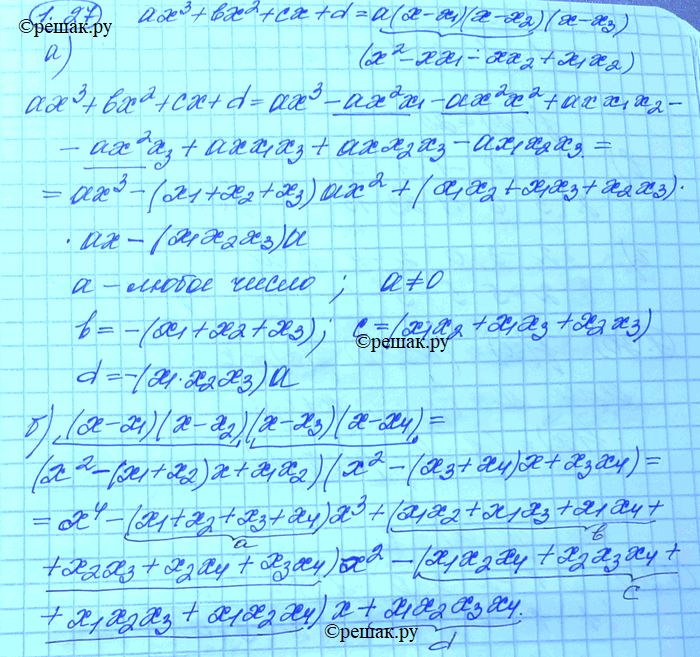 1.97 ax³+bx²+cx+d=a(x-x₁)(x-x₂)(x-x₃)
©решак.ру
а) (x²-xx₁-xx₂+x₁x₂)
ax³+bx²+cx+d=ax³-ax²x₁-ax²x²+axx₁x₂-
-ax²x₃+axx₁x₃+axx₂x₃-ax₁x₂x₃=
=ax³-(x₁+x₂+x₃)ax²+(x₁x₂+x₁x₃+x₂x₃)·
·ax-(x₁x₂x₃)a
a-любое число; a≠0
b=-(x₁+x₂+x₃); c=(x₁x₂+x₁x₃+x₂x₃)
©решак.ру
d=-(x₁·x₂x₃)a
б) (x-x₁)(x-x₂)(x-x₃)(x-x₄)=
(x²-(x₁+x₂)x+x₁x₂)(x²-(x₃+x₄)x+x₃x₄)=
=x⁴-(x₁+x₂+x₃+x₄)x³+(x₁x₂+x₁x₃+x₁x₄+
a b
+x₂x₃+x₂x₄+x₃x₄)x²-(x₁x₂x₄+x₂x₃x₄+
c
+x₁x₂x₃+x₁x₂x₄)x+x₁x₂x₃x₄.
d
©решак.ру